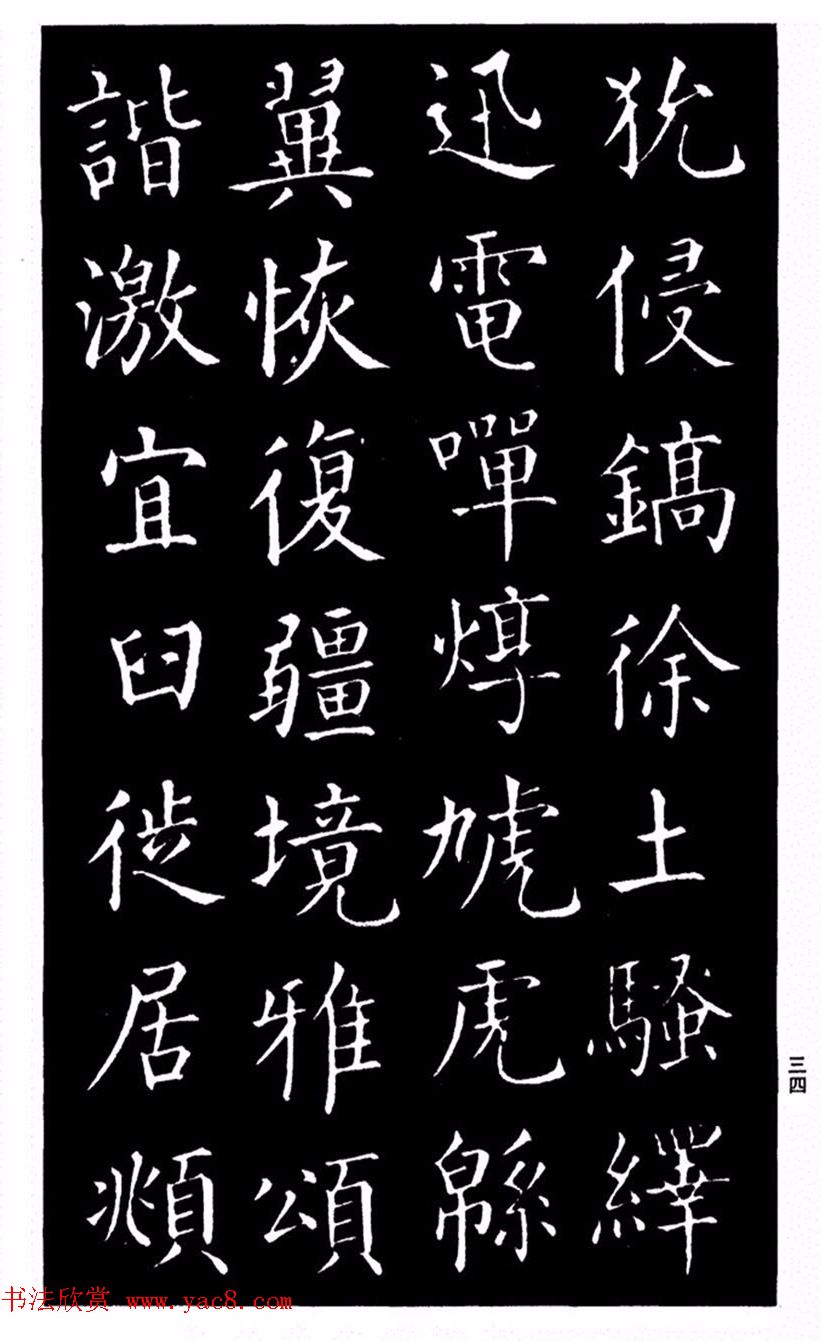 犹侵鎬徐土騷繹
迅電嘽焞虓虎緜
翼恢復疆境雅頌
諧激宜臼徙居頫
三四
书法欣赏 www.yac8.com